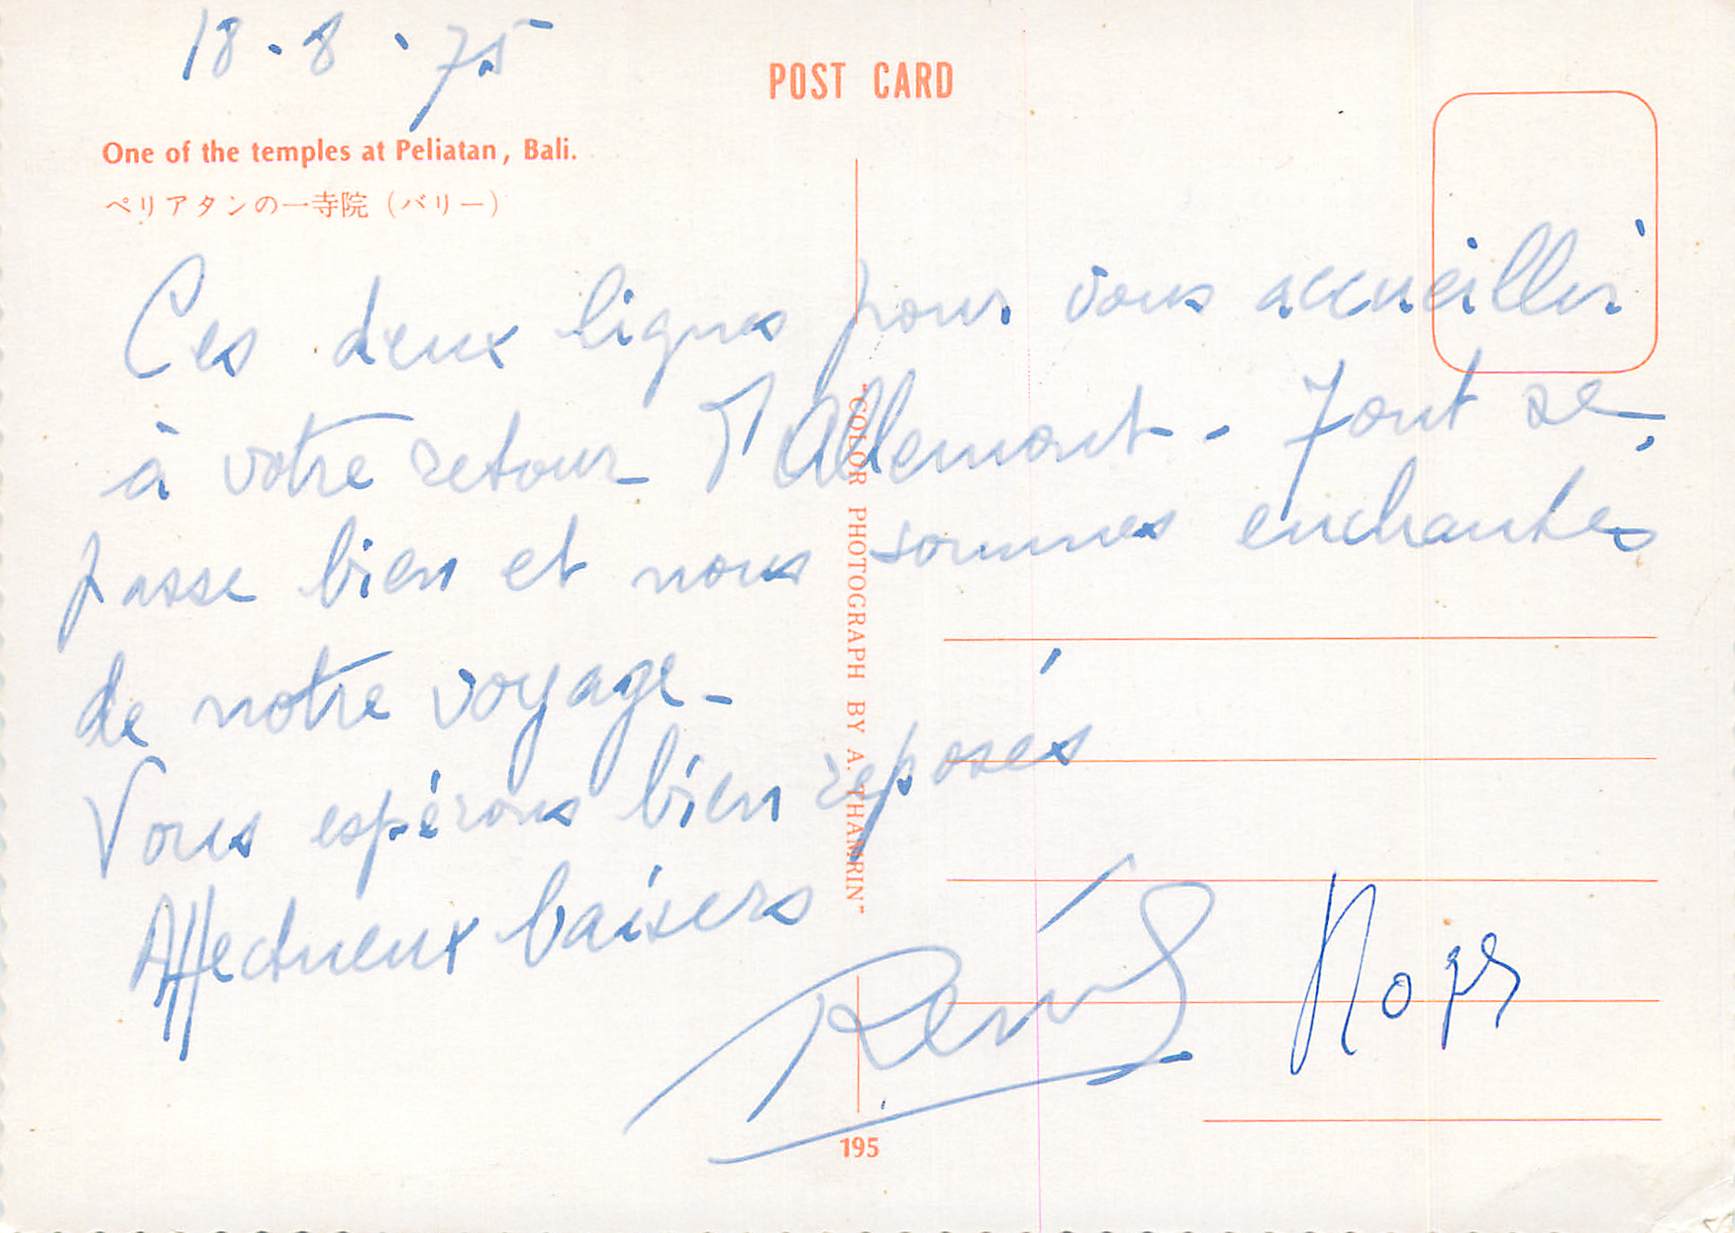 18.8.75
POST CARD
One of the temples at Peliatan, Bali.
ペリアタンの一寺院 (バリー)
Ces deux lignes pour vous accueillir
à votre retour d'Allemont - Tout se
passe bien et nous sommes enchantés
de notre voyage -
Vous espérons bien reposés
Affectueux baisers
"COLOR PHOTOGRAPH BY A. THAMRIN"
195